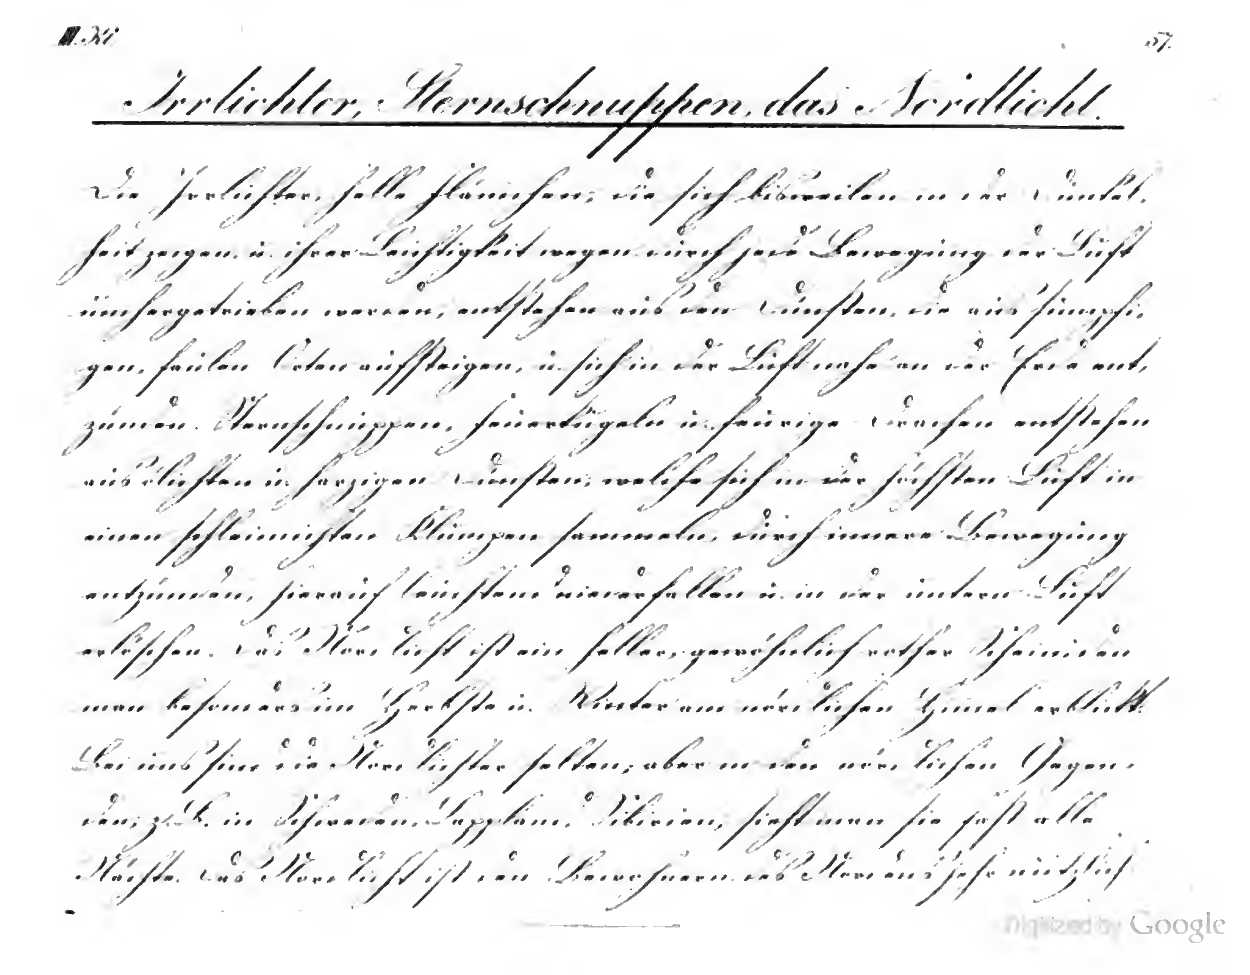 57.
Irrlichter, Sternschnuppen, das Nordlicht.
Die Irrlichter, helle Flämchen, die sich bisweilen in der Dunkel,
heit zeigen, u. ihrer Leichtigkeit wegen durch jede Bewegung der Luft
umhergetrieben werden, entstehen aus den Dünsten, die aus sumpfi,
gen, faulen Orten aufsteigen, u. sich in der Luft nahe an der Erde ent,
zünden. Sternschnuppen, Feuerkugeln u. feurige Drachen entstehen
aus ölichten u. harzigen Dünsten, welche sich in der höchsten Luft in
einen schleimichten Klumpen sammeln, durch innere Bewegung
entzünden, hierauf leuchtend niederfallen u. in der untern Luft
erlöschen. Das Nordlicht ist ein heller, gewöhnlich rother Schein, den
man besonders im Herbste u. Winter am nördlichen Himel erblickt.
Bei uns sind die Nordlichter selten, aber in den nördlichen Gegen,
den, z. B. in Schweden, Lappland, Sibirien, sieht man sie fast alle
Nächte. Das Nordlicht ist den Bewohnern des Nordens sehr nützlich
Digitized by Google